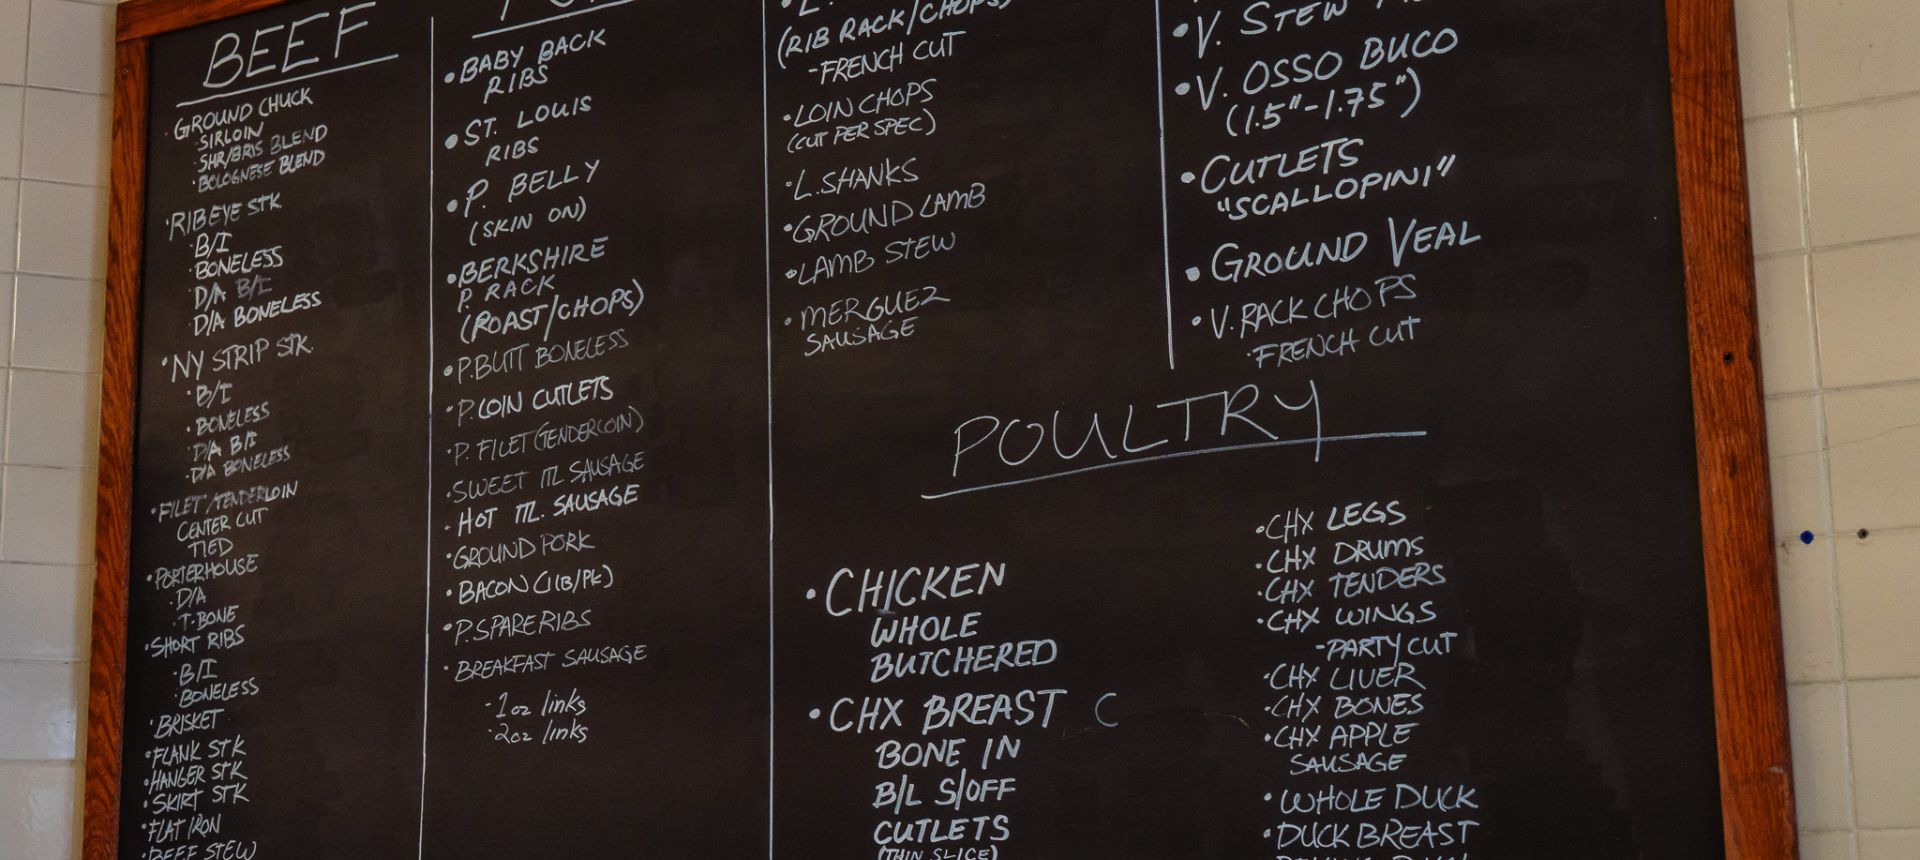 BEEF
GROUND CHUCK
SIRLOIN
SHR/BRIS BLEND
BOLOGNESE BLEND
RIBEYE STK
B/I
BONELESS
D/A B/I
D/A BONELESS
NY STRIP STK.
B/I
BONELESS
D/A B/I
D/A BONELESS
FILET/TENDERLOIN
CENTER CUT
TIED
PORTERHOUSE
D/A
T-BONE
SHORT RIBS
B/I
BONELESS
BRISKET
FLANK STK
HANGER STK
SKIRT STK
FLAT IRON
BEEF STEW
BABY BACK
RIBS
ST. LOUIS
RIBS
P. BELLY
(SKIN ON)
BERKSHIRE
P. RACK
(ROAST/CHOPS)
P. BUTT BONELESS
P. LOIN CUTLETS
P. FILET (TENDERLOIN)
SWEET ITL SAUSAGE
HOT ITL. SAUSAGE
GROUND PORK
BACON (1LB/PK)
P. SPARERIBS
BREAKFAST SAUSAGE
- 1oz links
- 2oz links
(RIB RACK/CHOPS)
- FRENCH CUT
LOIN CHOPS
(CUT PER SPEC)
L. SHANKS
GROUND LAMB
LAMB STEW
MERGUEZ
SAUSAGE
V. STEW
V. OSSO BUCO
(1.5"-1.75")
CUTLETS
"SCALLOPINI"
GROUND VEAL
V. RACK CHOPS
FRENCH CUT
POULTRY
CHICKEN
WHOLE
BUTCHERED
CHX BREAST C
BONE IN
B/L S/OFF
CUTLETS
(THIN SLICE)
CHX LEGS
CHX DRUMS
CHX TENDERS
CHX WINGS
- PARTY CUT
CHX LIVER
CHX BONES
CHX APPLE
SAUSAGE
WHOLE DUCK
DUCK BREAST